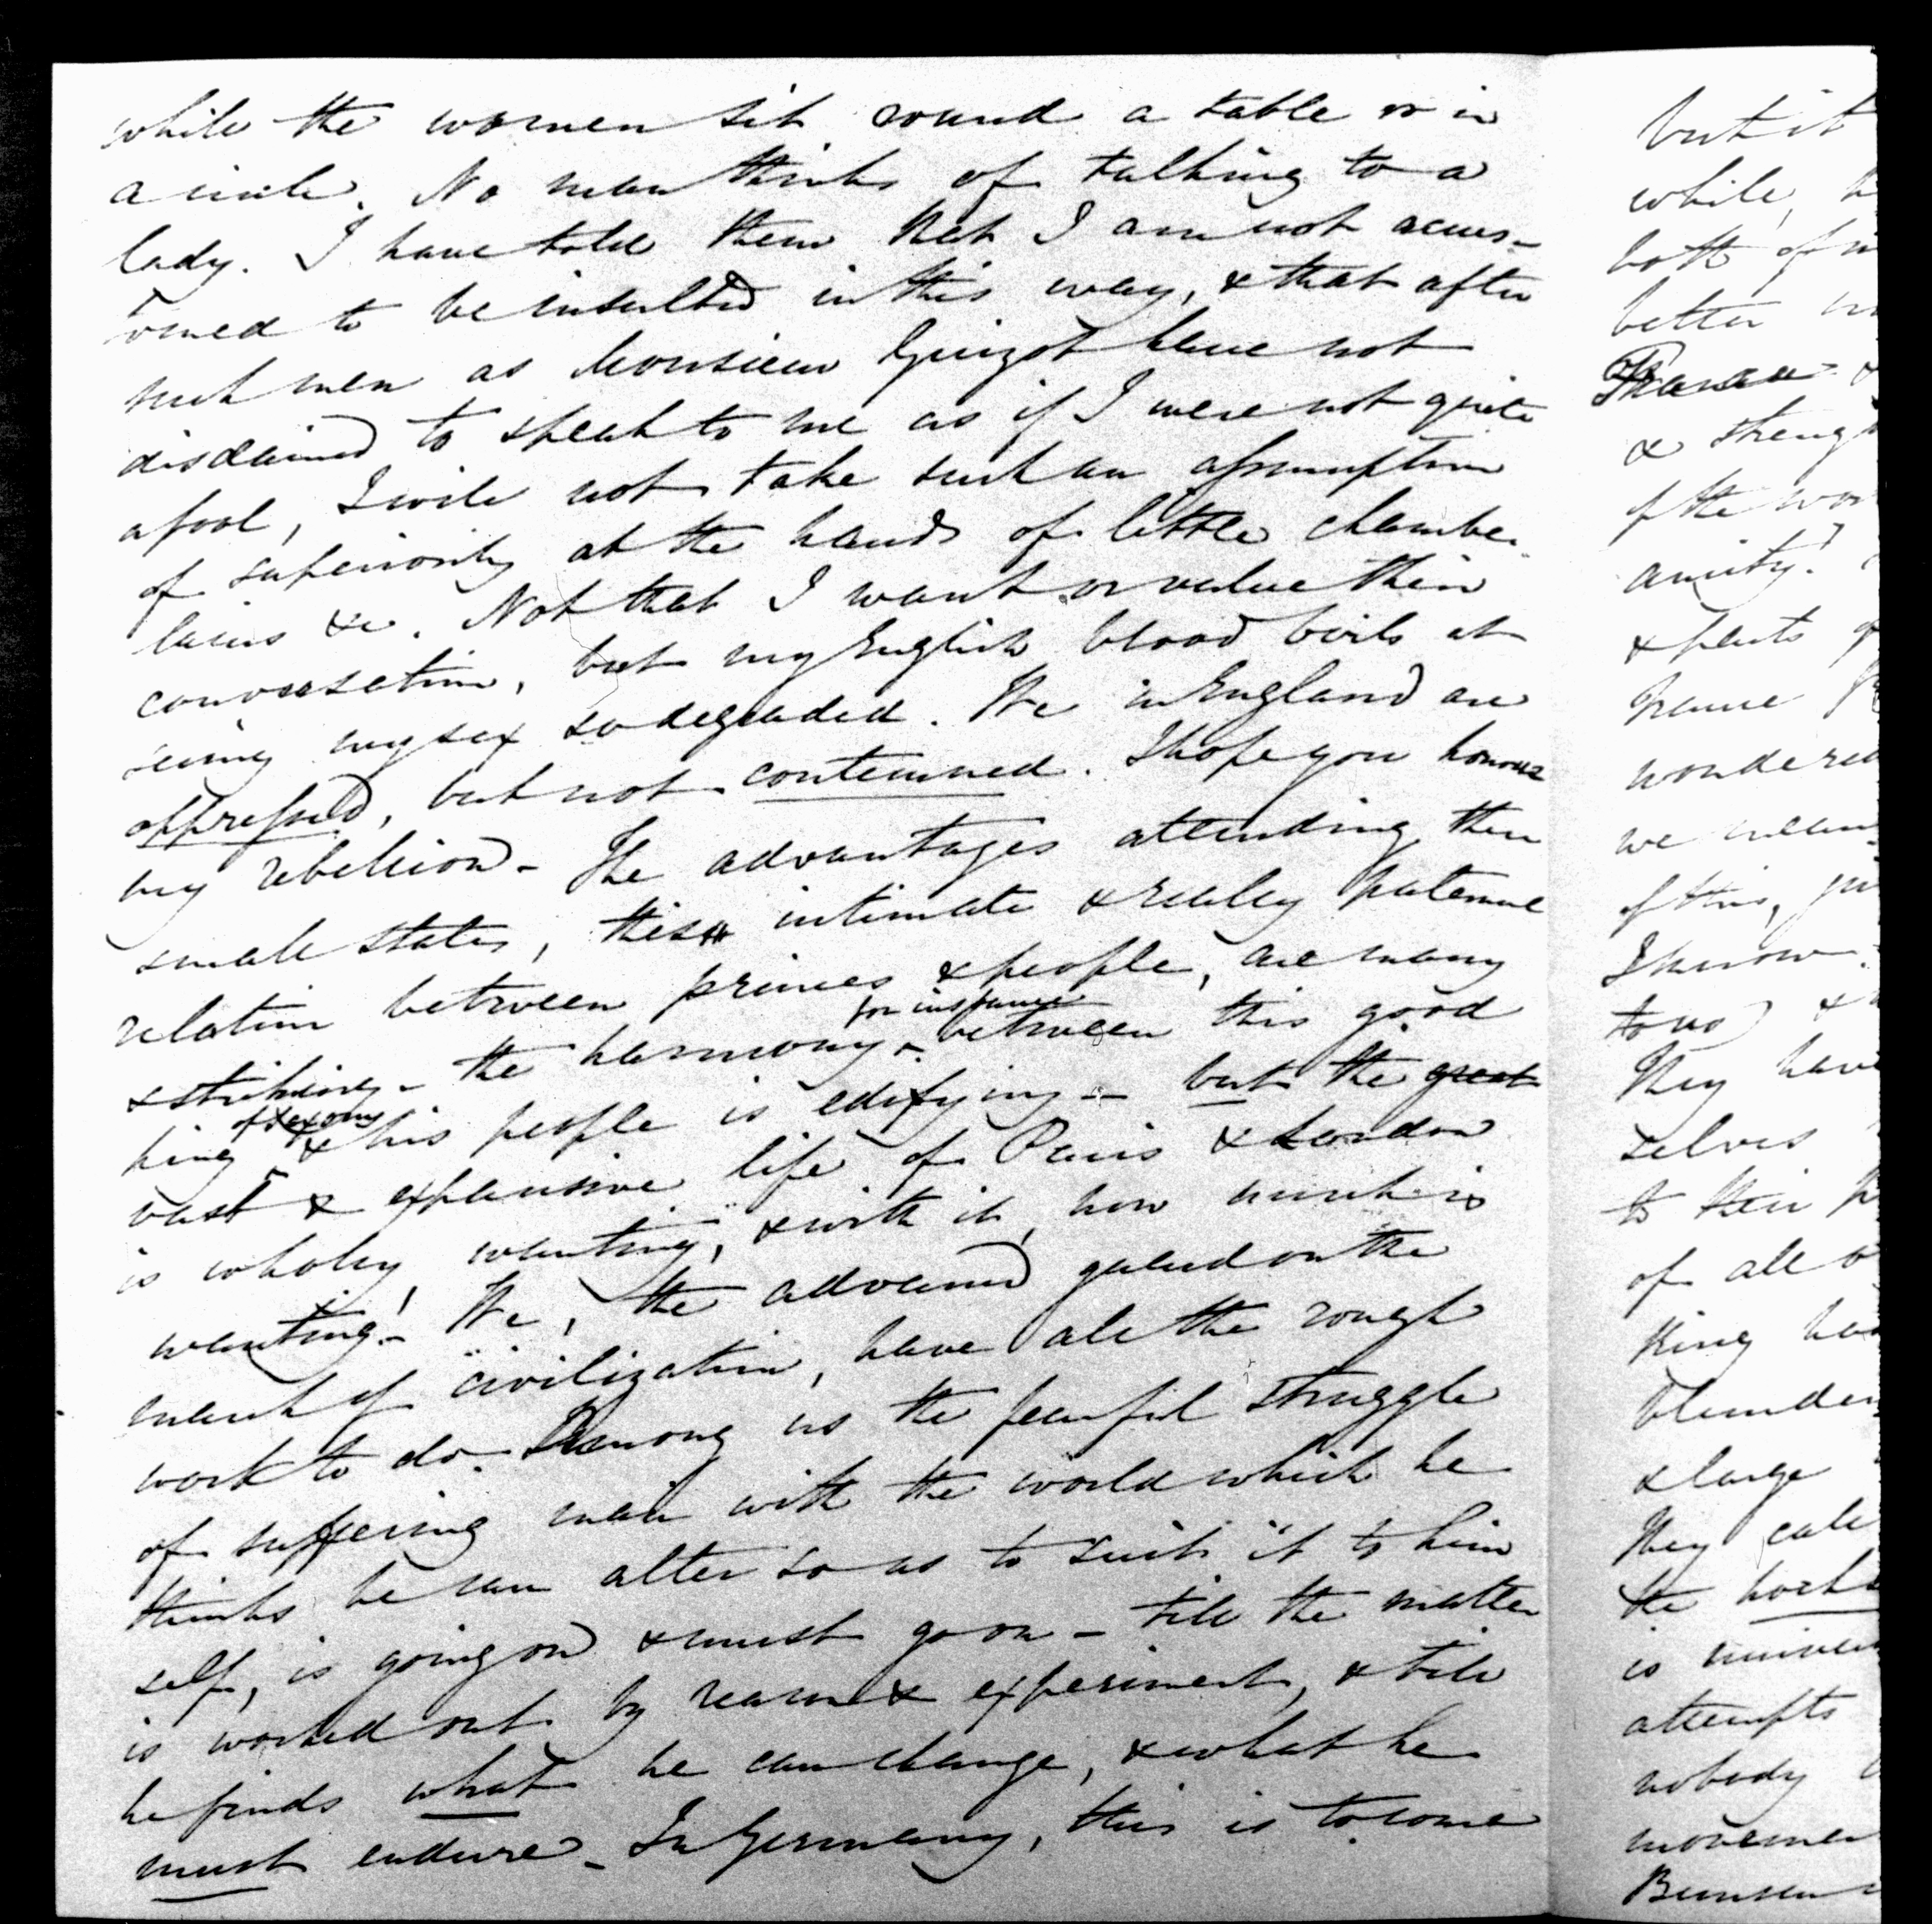 while the women sit round a table or in
a circle. No man thinks of talking to a
lady. I have told them that I am not accus-
tomed to be insulted in this way, & that after
such men as Monsieur Guizot have not
disdained to speak to me as if I were not quite
a fool, I will not take such an assumption
of superiority at the hands of little chamber
lains &c. Not that I want or value their
conversation, but my English blood boils at
seeing my sex so degraded. We in England are
oppressed, but not contemned. I hope you honour
my rebellion - The advantages attending these
small states, this intimate & really paternal
relation between princes & people, are many
& striking - the harmony for instance between this good
king of Saxony & his people is edifying - but the great
vast & expansive life of Paris & London
is wholly wanting, & with it, how much is
wanting! - We, the advanced guard on the
march of civilization, have all the rough
work to do. Among us the fearful struggle
of suffering man with the world which he
thinks he can alter so as to suit it to him
self, is going on & must go on - till the matter
is worked out by reason & experiment, & till
he finds what he can change, & what he
must endure - In Germany, this is to come
but it
while,
both of
better
France &
&
of the
amity?
& parts of
France
wondered
we mean
of this,
I know.
to us) &
They have
selves
to their
of all
King ha
blunder
& large
They call
the
is
attempts
nobody
movemen
Bunsen